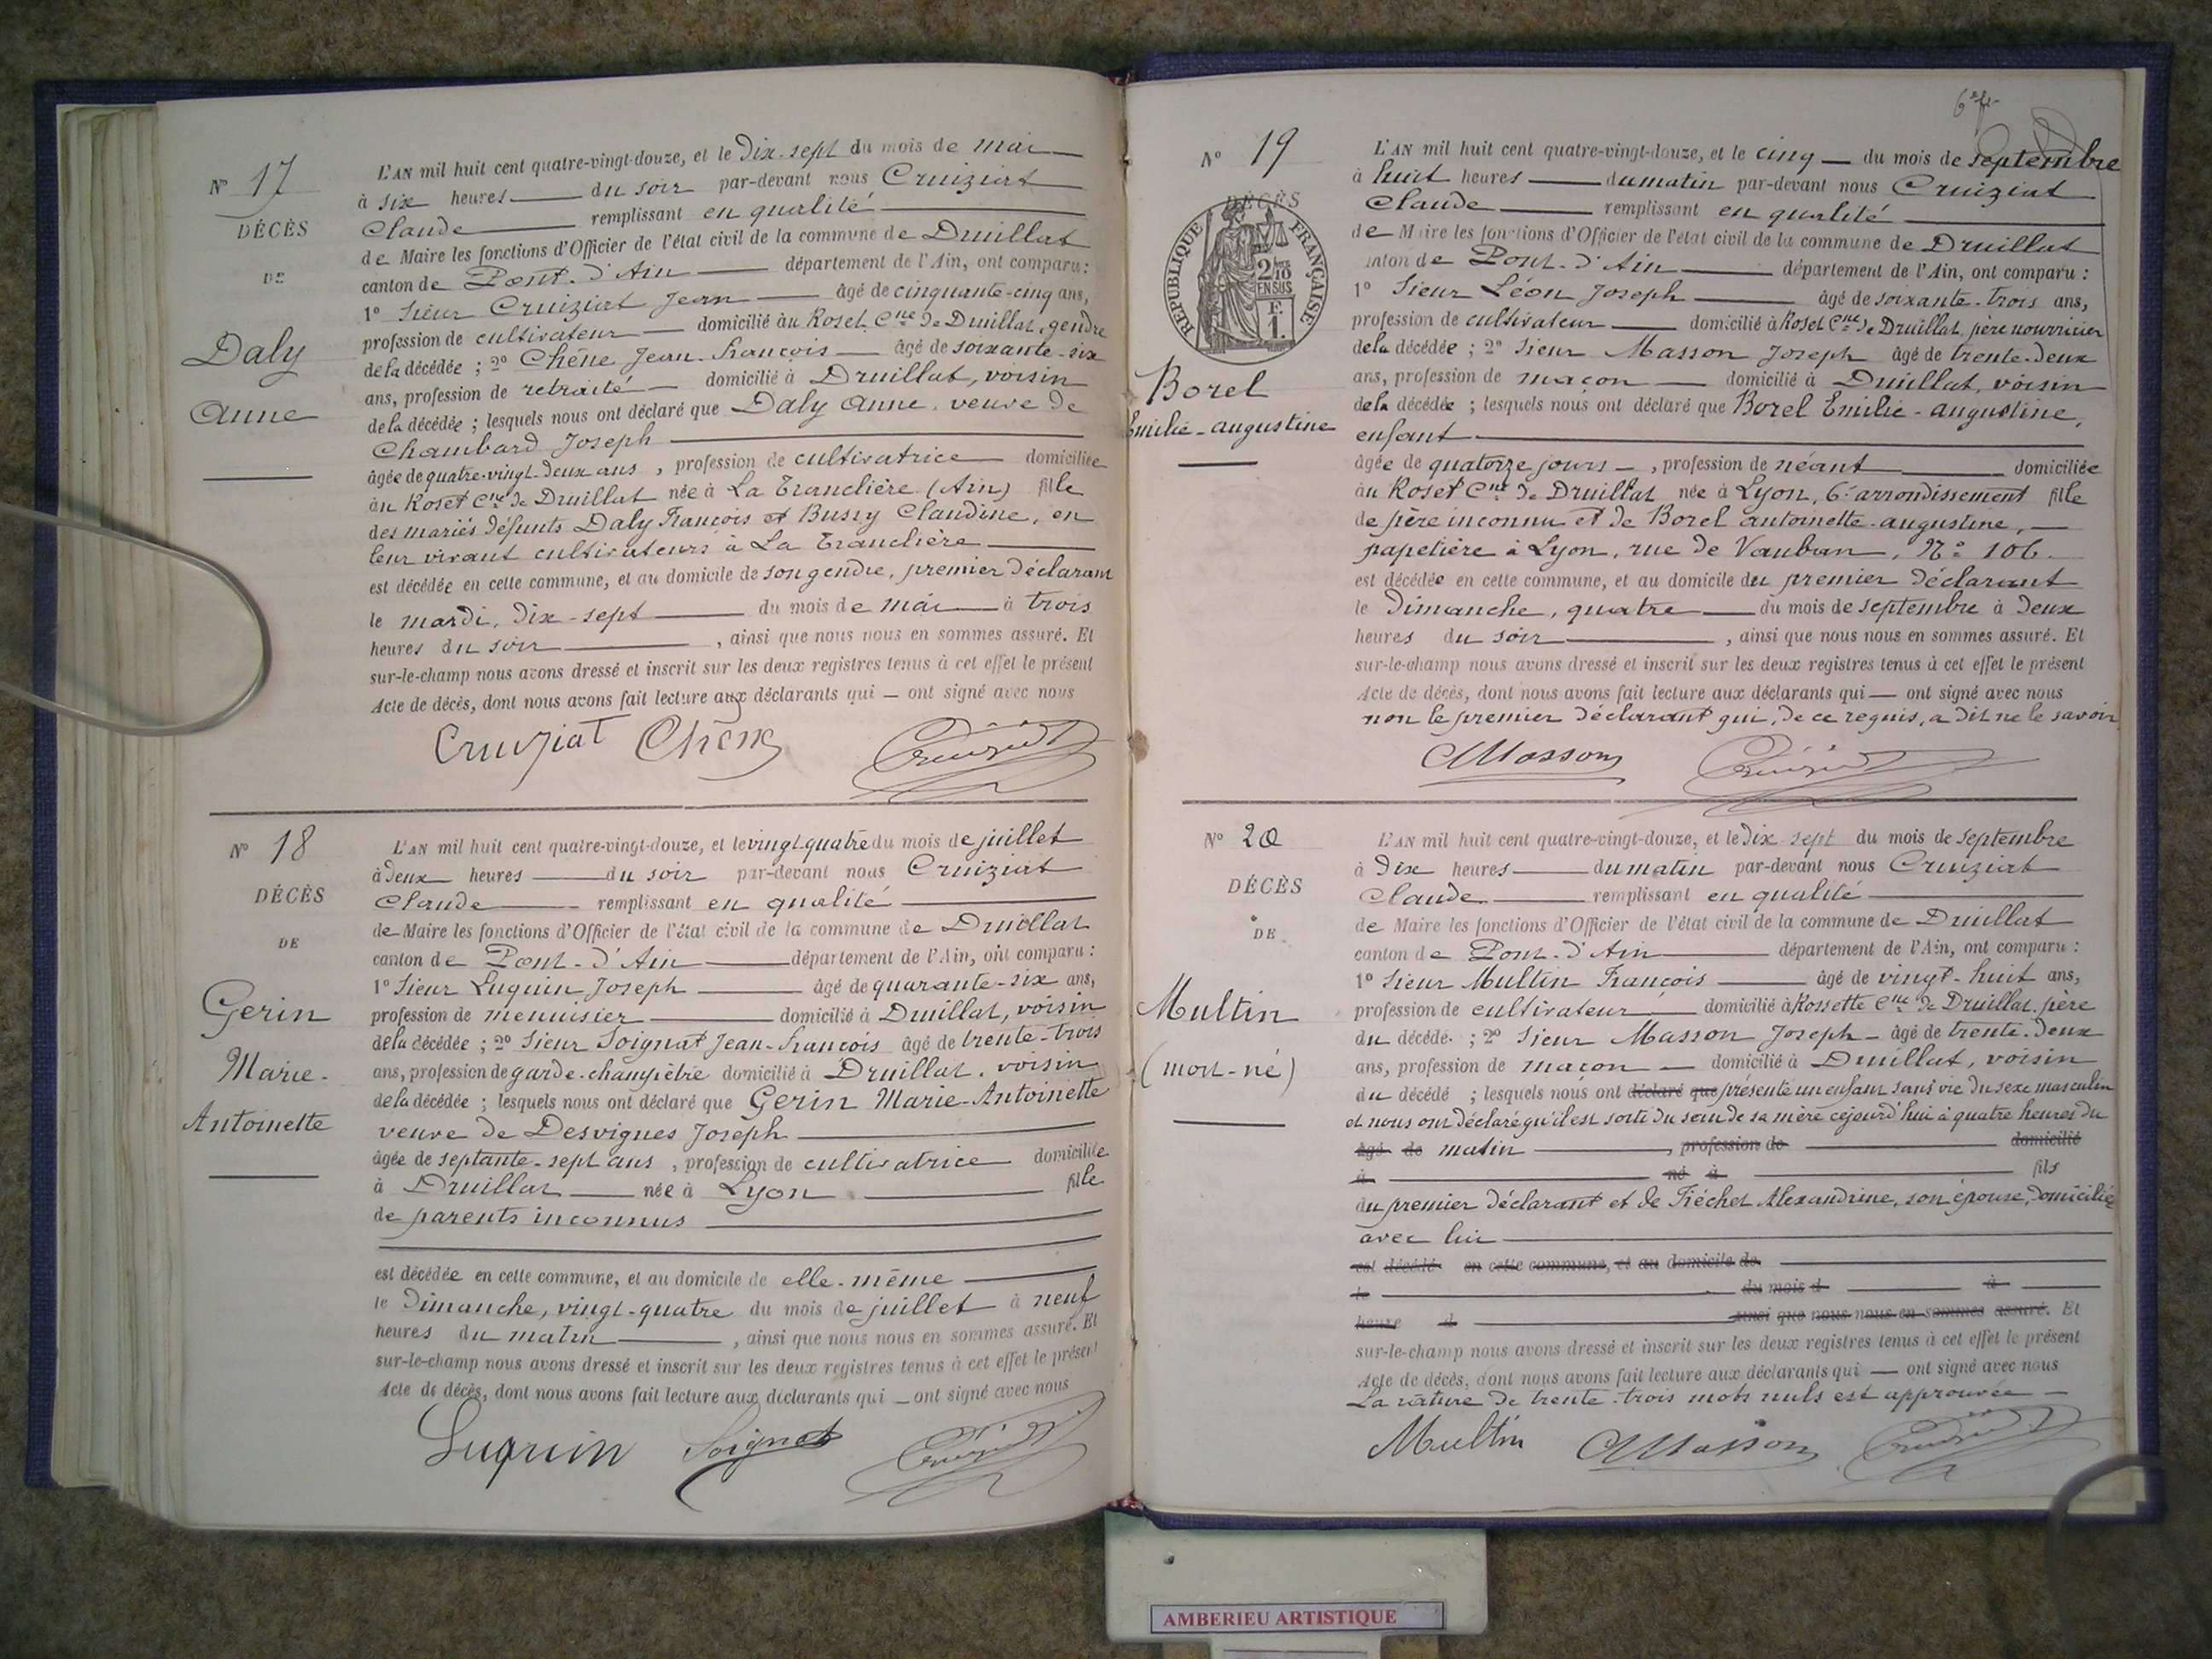 N° 17
DÉCÈS
DE
Daly
Anne
L'AN mil huit cent quatre-vingt-douze, et le Dix-sept du mois de mai
à six heures du soir par-devant nous Cruiziat
Claude remplissant en qualité
de Maire les fonctions d'Officier de l'état civil de la commune de Druillat
canton de Pont-d'Ain département de l'Ain, ont comparu :
1° Sieur Cruiziat Jean âgé de cinquante-cinq ans,
profession de cultivateur domicilié au Roset Cne de Druillat, gendre
de la décédée ; 2° Chêne Jean-François âgé de soixante-six
ans, profession de retraité domicilié à Druillat, voisin
de la décédée ; lesquels nous ont déclaré que Daly Anne, veuve de
Chambard Joseph
âgée de quatre-vingt-deux ans, profession de cultivatrice domiciliée
au Roset Cne de Druillat née à La Tranclière (Ain) fille
des mariés défunts Daly François et Bussy Claudine, en
leur vivant cultivateurs à La Tranclière
est décédée en cette commune, et au domicile de son gendre, premier déclarant
le mardi, dix-sept du mois de mai à trois
heures du soir, ainsi que nous nous en sommes assuré. Et
sur-le-champ nous avons dressé et inscrit sur les deux registres tenus à cet effet le présent
Acte de décès, dont nous avons fait lecture aux déclarants qui — ont signé avec nous
Cruiziat Chêne Cruiziat
N° 18
DÉCÈS
DE
Gerin
Marie-
Antoinette
L'AN mil huit cent quatre-vingt-douze, et le vingt-quatre du mois de juillet
à deux heures du soir par-devant nous Cruiziat
Claude remplissant en qualité
de Maire les fonctions d'Officier de l'état civil de la commune de Druillat
canton de Pont-d'Ain département de l'Ain, ont comparu :
1° Sieur Luquin Joseph âgé de quarante-six ans,
profession de menuisier domicilié à Druillat, voisin
de la décédée ; 2° Sieur Soignat Jean-François âgé de trente-trois
ans, profession de garde-champêtre domicilié à Druillat, voisin
de la décédée ; lesquels nous ont déclaré que Gerin Marie-Antoinette
veuve de Desvignes Joseph
âgée de septante-sept ans, profession de cultivatrice domiciliée
à Druillat née à Lyon fille
de parents inconnus
est décédée en cette commune, et au domicile de elle-même
le Dimanche, vingt-quatre du mois de juillet à neuf
heures du matin, ainsi que nous nous en sommes assuré. Et
sur-le-champ nous avons dressé et inscrit sur les deux registres tenus à cet effet le présent
Acte de décès, dont nous avons fait lecture aux déclarants qui — ont signé avec nous
Luquin Soignat Cruiziat
N° 19
DÉCÈS
RÉPUBLIQUE FRANÇAISE
2/10
EN SUS
F.
1.
Borel
Emilie-augustine
L'AN mil huit cent quatre-vingt-douze, et le cinq du mois de septembre
à huit heures du matin par-devant nous Cruiziat
Claude remplissant en qualité
de Maire les fonctions d'Officier de l'état civil de la commune de Druillat
canton de Pont-d'Ain département de l'Ain, ont comparu :
1° Sieur Léon Joseph âgé de soixante-trois ans,
profession de cultivateur domicilié à Roset Cne de Druillat, père nourricier
de la décédée ; 2° Sieur Masson Joseph âgé de trente-deux
ans, profession de maçon domicilié à Druillat, voisin
de la décédée ; lesquels nous ont déclaré que Borel Emilie-augustine,
enfant
âgée de quatorze jours, profession de néant domiciliée
au Roset Cne de Druillat née à Lyon, 6e arrondissement fille
de père inconnu et de Borel antoinette-augustine,
papetière à Lyon, rue de Vauban, N° 106.
est décédée en cette commune, et au domicile du premier déclarant
le Dimanche, quatre du mois de septembre à deux
heures du soir, ainsi que nous nous en sommes assuré. Et
sur-le-champ nous avons dressé et inscrit sur les deux registres tenus à cet effet le présent
Acte de décès, dont nous avons fait lecture aux déclarants qui — ont signé avec nous
non le premier déclarant qui, de ce requis, a dit ne le savoir
Masson Cruiziat
N° 20
DÉCÈS
DE
Multin
(mort-né)
L'AN mil huit cent quatre-vingt-douze, et le Dix sept du mois de septembre
à Dix heures du matin par-devant nous Cruiziat
Claude remplissant en qualité
de Maire les fonctions d'Officier de l'état civil de la commune de Druillat
canton de Pont-d'Ain département de l'Ain, ont comparu :
1° Sieur Multin François âgé de vingt-huit ans,
profession de cultivateur domicilié à Rossette Cne de Druillat, père
du décédé ; 2° Sieur Masson Joseph âgé de trente-deux
ans, profession de maçon domicilié à Druillat, voisin
du décédé ; lesquels nous ont déclaré que présenté un enfant sans vie du sexe masculin
et nous ont déclaré qu'il est sorti du sein de sa mère cejourd'hui à quatre heures du
âgé de matin, profession de domicilié
à né à fils
du premier déclarant et de Fléchet Alexandrine, son épouse, domiciliée
avec lui
est décédé en cette commune, et au domicile de
le du mois d à
heure d ainsi que nous nous en sommes assuré. Et
sur-le-champ nous avons dressé et inscrit sur les deux registres tenus à cet effet le présent
Acte de décès, dont nous avons fait lecture aux déclarants qui — ont signé avec nous
La rature de trente-trois mots nuls est approuvée
Multin Masson Cruiziat
AMBERIEU ARTISTIQUE